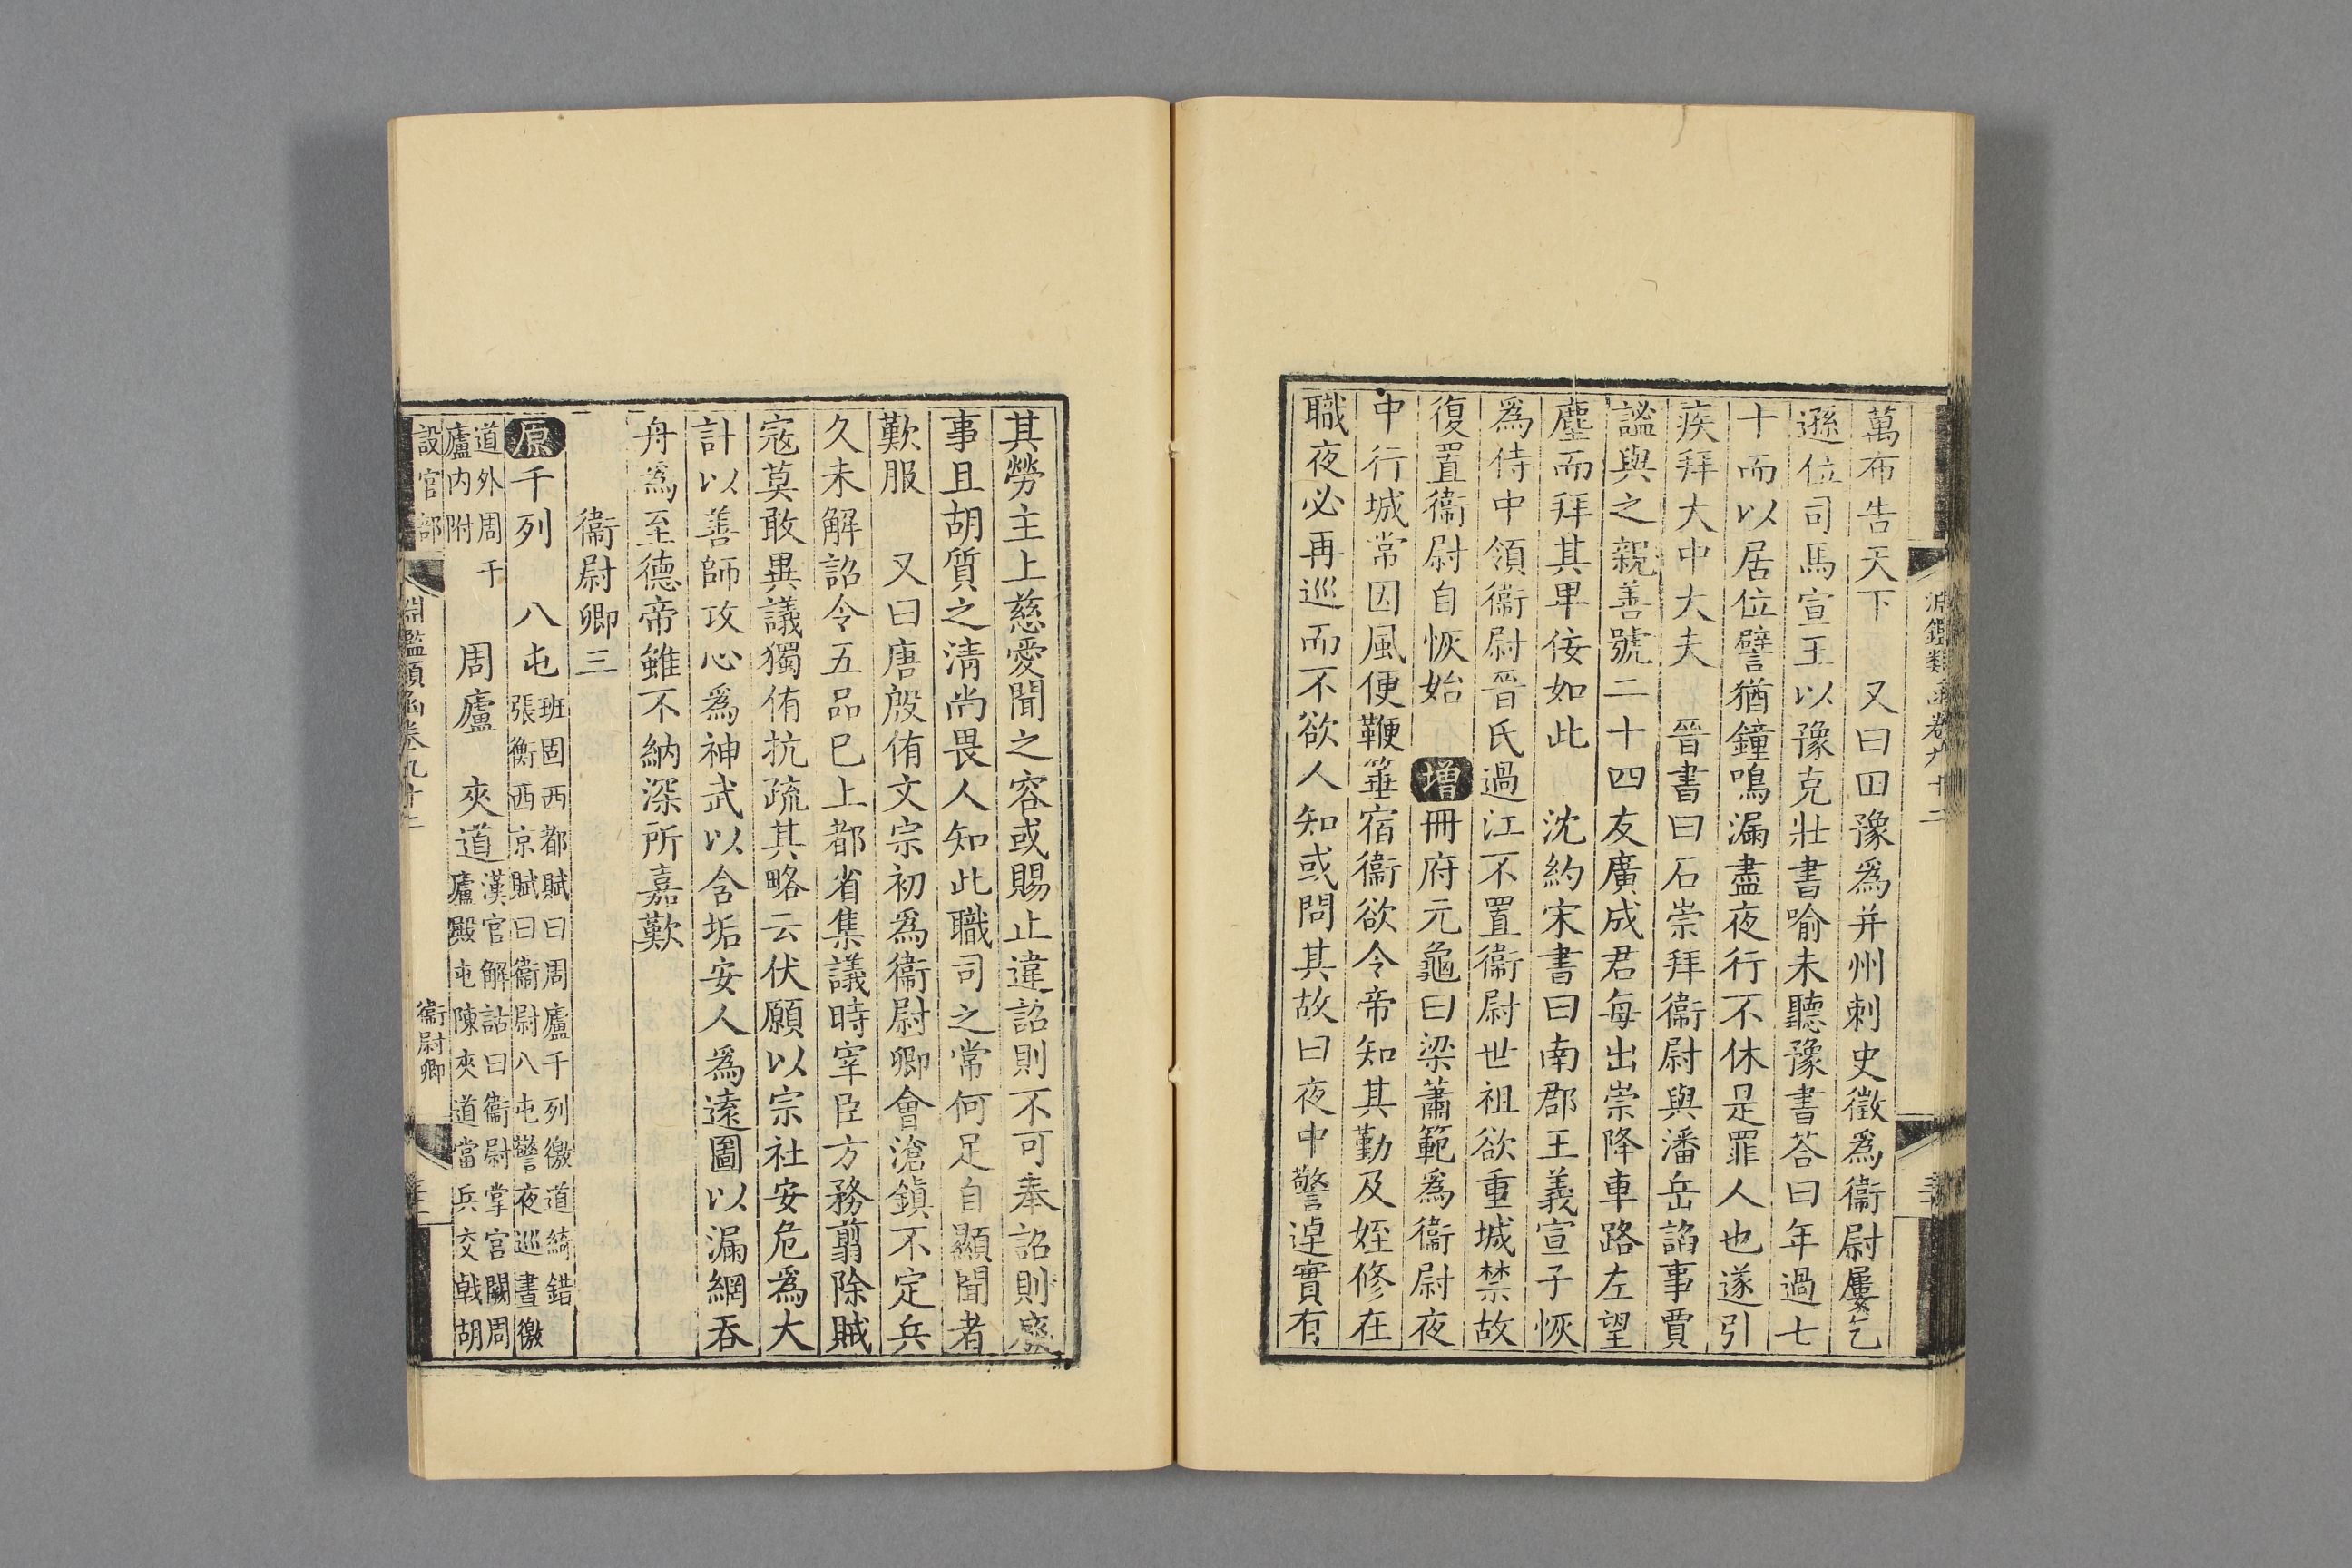 淵鑑類函卷九十二
萬布告天下　又曰田豫爲并州刺史徵爲衞尉屢乞
遜位司馬宣王以豫克壯書喻未聽豫書答曰年過七
十而以居位譬猶鐘鳴漏盡夜行不休是罪人也遂引
疾拜大中大夫　晉書曰石崇拜衞尉與潘岳諂事賈
謐與之親善號二十四友廣成君每出崇降車路左望
塵而拜其卑佞如此　沈約宋書曰南郡王義宣子恢
爲侍中領衞尉晉氏過江不置衞尉世祖欲重城禁故
復置衞尉自恢始　增冊府元龜曰梁蕭範爲衞尉夜
中行城常因風便鞭箠宿衞欲令帝知其勤及姪修在
職夜必再巡而不欲人知或問其故曰夜中警逴實有
其勞主上慈愛聞之容或賜止違詔則不可奉詔則廢
事且胡質之清尚畏人知此職司之常何足自顯聞者
歎服　又曰唐殷侑文宗初爲衞尉卿會滄鎮不定兵
久未解詔令五品已上都省集議時宰臣方務翦除賊
寇莫敢異議獨侑抗疏其略云伏願以宗社安危爲大
計以善師攻心爲神武以含垢安人爲遠圖以漏網吞
舟爲至德帝雖不納深所嘉歎
衞尉卿三
原千列　八屯班固西都賦曰周廬千列徼道綺錯
張衡西京賦曰衞尉八屯警夜巡晝徼
道外周千
廬内附　周廬　夾道漢官解詁曰衞尉掌宮闕周
廬殿屯陳夾道當兵交戟胡
設官部　淵鑑類函卷九十二　衞尉卿